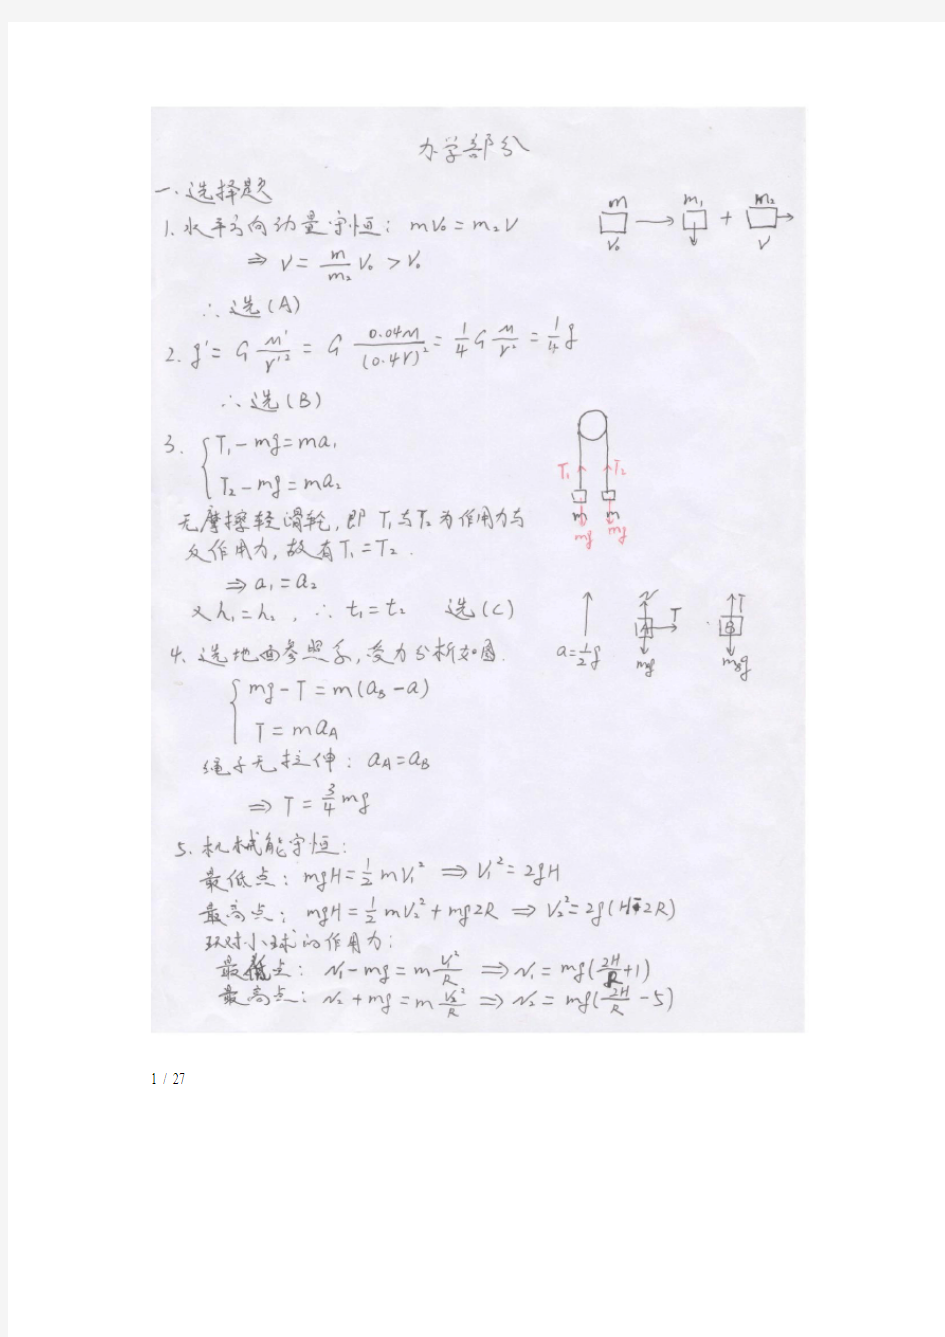 力学部分
一、选择题
1. 水平方向动量守恒: mV₀ = m₂V
⇒ V = m/m₂ V₀ > V₀
∴ 选(A)
m V₀ → m₁ + m₂ V
2. g' = G M'/r'² = G 0.04M/(0.4r)² = 1/4 G M/r² = 1/4 g
∴ 选(B)
3. { T₁ - mg = ma₁
T₂ - mg = ma₂
T₁ T₂
m m
mg mg
无摩擦轻滑轮, 即 T₁与T₂为作用力与
反作用力, 故有T₁ = T₂.
⇒ a₁ = a₂
又h₁ = h₂, ∴ t₁ = t₂ 选(C)
4. 选地面参照系, 受力分析如图.
a = 1/2 g
N A T mg
T B m_Bg
{ mg - T = m(a_B - a)
T = ma_A
绳子无拉伸: a_A = a_B
⇒ T = 3/4 mg
5. 机械能守恒:
最低点: mgH = 1/2 mV₁² ⇒ V₁² = 2gH
最高点: mgH = 1/2 mV₂² + mg2R ⇒ V₂² = 2g(H-2R)
环对小球的作用力:
最低点: N₁ - mg = m V₁²/R ⇒ N₁ = mg(2H/R + 1)
最高点: N₂ + mg = m V₂²/R ⇒ N₂ = mg(2H/R - 5)
1 / 27